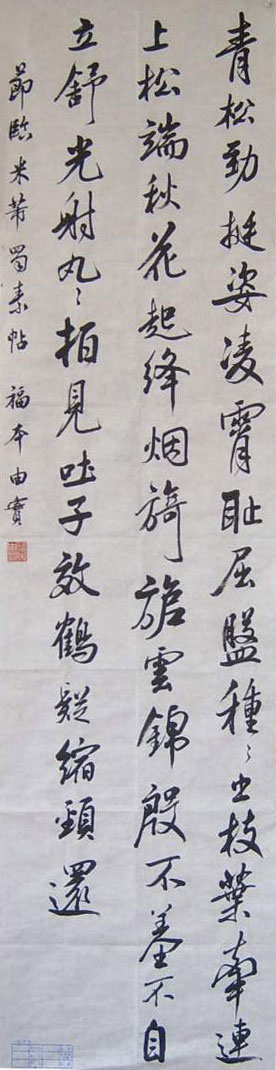 青松勁挺姿凌霄恥屈盤種〻出枝葉牽連
上松端秋花起絳烟旖旎雲錦殷不羞不自
立舒光射丸〻柏見吐子效鶴疑縮頸還
節臨米芾蜀素帖 福本由實